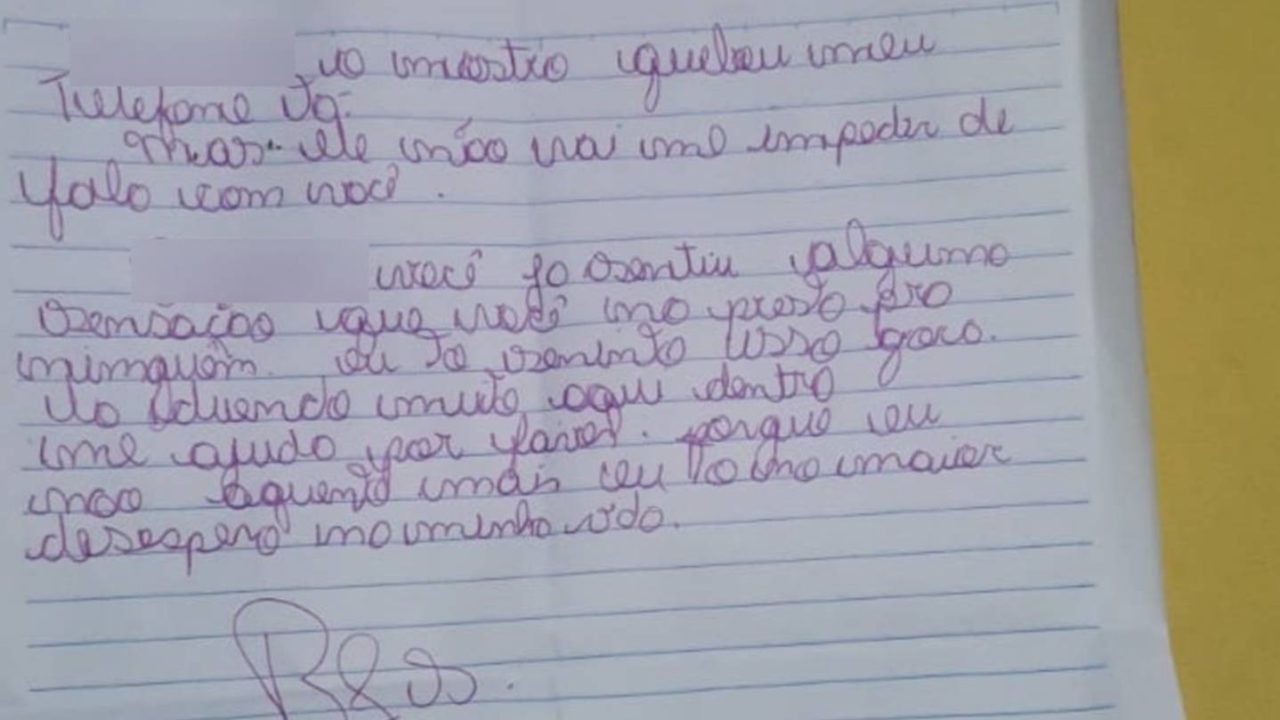 o mostro quebou meu
Telefone
mas ele não vai me impedir de
falo com você.
você ja sentiu alguma
sensaçao que você no presta pra
ninguem. eu to seninto isso gora.
to duendo muito aqui dentro
me ajudo por favor. porque eu
nao aquento mais eu to no maior
desespero na minha vida.